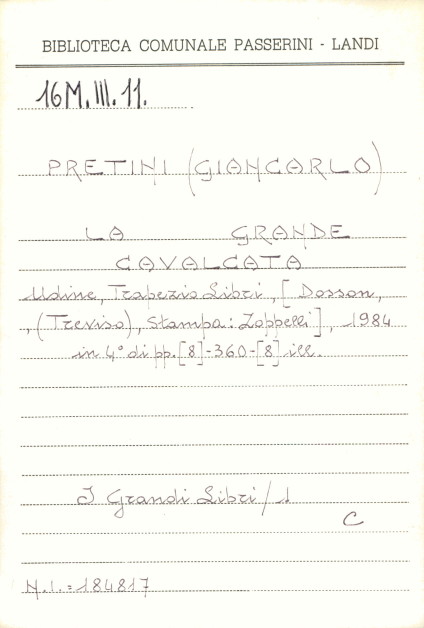 BIBLIOTECA COMUNALE PASSERINI - LANDI
16M.III.11.
PRETINI (GIANCARLO)
LA GRANDE
CAVALCATA
Udine, Trapezio Libri, [Dosson,
, (Treviso), stampa: Zoppelli], 1984
in 4° di pp. [8]-360-[8] ill.
I Grandi Libri/1
C
N.I.=184817